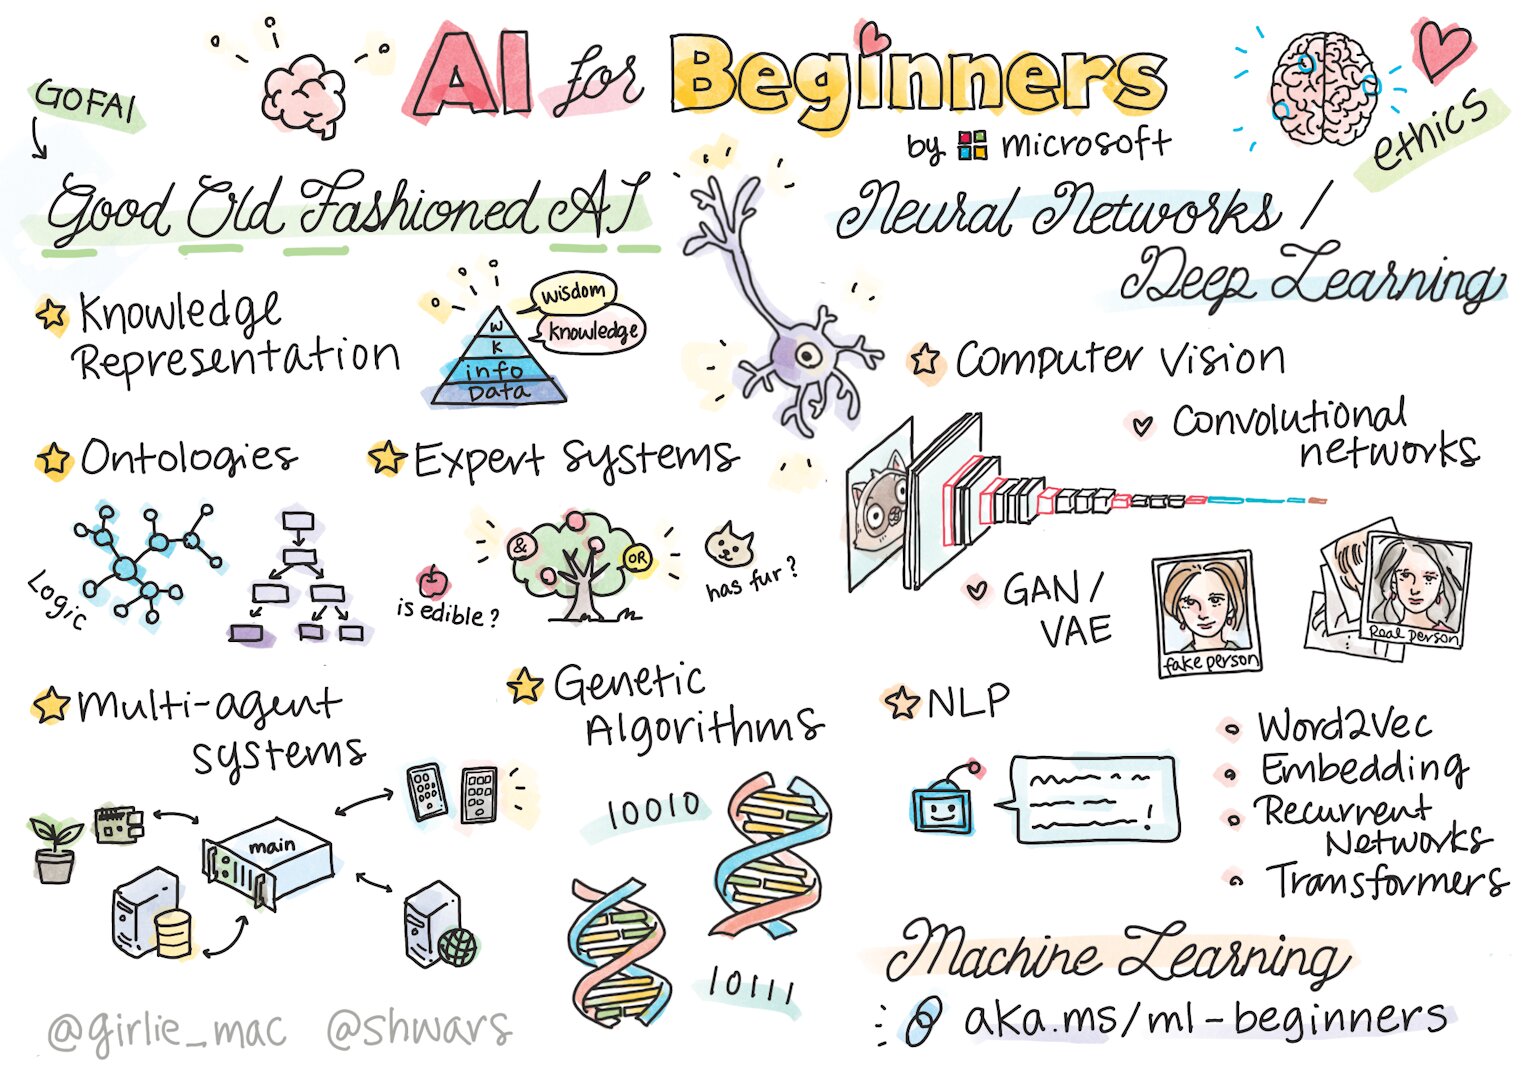 AI for Beginners
by microsoft
GOFAI
Good Old Fashioned AI
Knowledge
Representation
wisdom
knowledge
W
K
info
Data
Ontologies
Logic
Expert Systems
&
OR
is edible?
has fur?
Multi-agent
systems
main
Genetic
Algorithms
10010
10111
@girlie_mac @shwars
ethics
Neural Networks /
Deep Learning
Computer Vision
Convolutional
networks
GAN/
VAE
fake person
Real person
NLP
!
Word2Vec
Embedding
Recurrent
Networks
Transformers
Machine Learning
aka.ms/ml-beginners